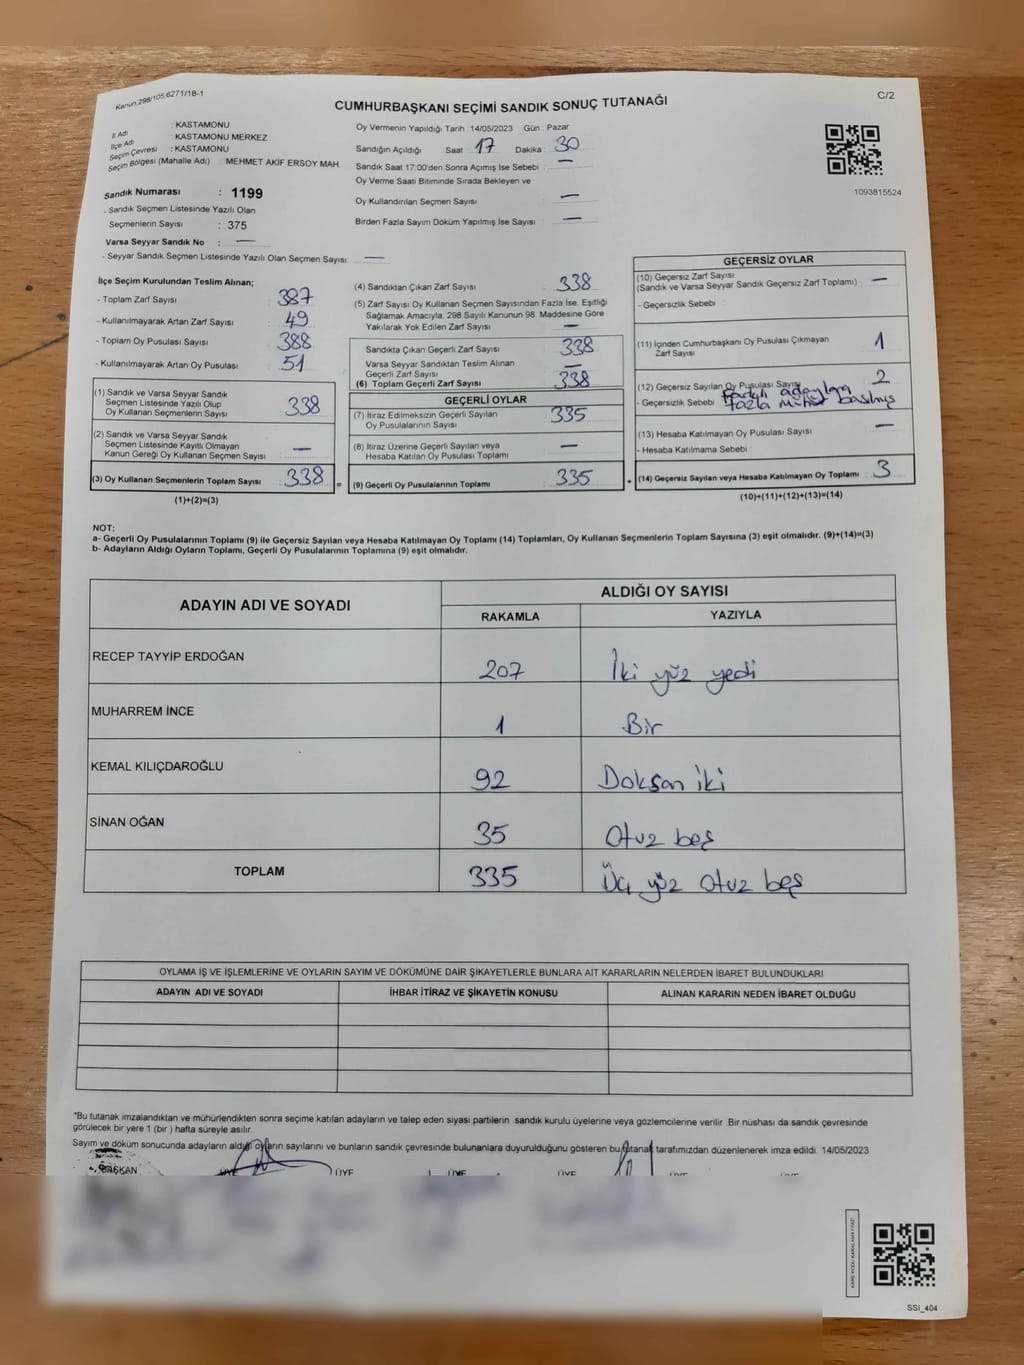 Kanun,298/105,6271/18-1
C/2
CUMHURBAŞKANI SEÇİMİ SANDIK SONUÇ TUTANAĞI
İl Adı : KASTAMONU
İlçe Adı : KASTAMONU MERKEZ
Seçim Çevresi : KASTAMONU
Seçim Bölgesi (Mahalle Adı) : MEHMET AKİF ERSOY MAH.
Sandık Numarası : 1199
- Sandık Seçmen Listesinde Yazılı Olan
Seçmenlerin Sayısı : 375
Varsa Seyyar Sandık No : —
- Seyyar Sandık Seçmen Listesinde Yazılı Olan Seçmen Sayısı : —
Oy Vermenin Yapıldığı Tarih : 14/05/2023 Gün : Pazar
Sandığın Açıldığı Saat 17 Dakika : 30
Sandık Saat 17:00'den Sonra Açımış İse Sebebi : —
Oy Verme Saati Bitiminde Sırada Bekleyen ve
Oy Kullandırılan Seçmen Sayısı : —
Birden Fazla Sayım Döküm Yapılmış İse Sayısı : —
1093815524
İlçe Seçim Kurulundan Teslim Alınan;
- Toplam Zarf Sayısı : 387
- Kullanılmayarak Artan Zarf Sayısı : 49
- Toplam Oy Pusulası Sayısı : 388
- Kullanılmayarak Artan Oy Pusulası : 51
(1) Sandık ve Varsa Seyyar Sandık
Seçmen Listesinde Yazılı Olup
Oy Kullanan Seçmenlerin Sayısı : 338
(2) Sandık ve Varsa Seyyar Sandık
Seçmen Listesinde Kayıtlı Olmayan
Kanun Gereği Oy Kullanan Seçmen Sayısı : —
(3) Oy Kullanan Seçmenlerin Toplam Sayısı : 338 =
(1)+(2)=(3)
(4) Sandıktan Çıkan Zarf Sayısı : 338
(5) Zarf Sayısı Oy Kullanan Seçmen Sayısından Fazla İse, Eşitliği
Sağlamak Amacıyla; 298 Sayılı Kanunun 98. Maddesine Göre
Yakılarak Yok Edilen Zarf Sayısı : —
Sandıkta Çıkan Geçerli Zarf Sayısı : 338
Varsa Seyyar Sandıktan Teslim Alınan
Geçerli Zarf Sayısı : —
(6) Toplam Geçerli Zarf Sayısı : 338
GEÇERLİ OYLAR
(7) İtiraz Edilmeksizin Geçerli Sayılan
Oy Pusulalarının Sayısı : 335
(8) İtiraz Üzerine Geçerli Sayılan veya
Hesaba Katılan Oy Pusulası Toplamı : —
(9) Geçerli Oy Pusulalarının Toplamı : 335 +
GEÇERSİZ OYLAR
(10) Geçersiz Zarf Sayısı
(Sandık ve Varsa Seyyar Sandık Geçersiz Zarf Toplamı) : —
- Geçersizlik Sebebi :
(11) İçinden Cumhurbaşkanı Oy Pusulası Çıkmayan
Zarf Sayısı : 1
(12) Geçersiz Sayılan Oy Pusulası Sayısı : 2
- Geçersizlik Sebebi : Farklı adaylara
fazla mühür basılmış
(13) Hesaba Katılmayan Oy Pusulası Sayısı : —
- Hesaba Katılmama Sebebi :
(14) Geçersiz Sayılan veya Hesaba Katılmayan Oy Toplamı : 3
(10)+(11)+(12)+(13)=(14)
NOT:
a- Geçerli Oy Pusulalarının Toplamı (9) ile Geçersiz Sayılan veya Hesaba Katılmayan Oy Toplamı (14) Toplamları, Oy Kullanan Seçmenlerin Toplam Sayısına (3) eşit olmalıdır. (9)+(14)=(3)
b- Adayların Aldığı Oyların Toplamı, Geçerli Oy Pusulalarının Toplamına (9) eşit olmalıdır.
ADAYIN ADI VE SOYADI
ALDIĞI OY SAYISI
RAKAMLA YAZIYLA
RECEP TAYYİP ERDOĞAN 207 İki yüz yedi
MUHARREM İNCE 1 Bir
KEMAL KILIÇDAROĞLU 92 Doksan iki
SİNAN OĞAN 35 Otuz beş
TOPLAM 335 Üç yüz Otuz beş
OYLAMA İŞ VE İŞLEMLERİNE VE OYLARIN SAYIM VE DÖKÜMÜNE DAİR ŞİKAYETLERLE BUNLARA AİT KARARLARIN NELERDEN İBARET BULUNDUKLARI
ADAYIN ADI VE SOYADI İHBAR İTİRAZ VE ŞİKAYETİN KONUSU ALINAN KARARIN NEDEN İBARET OLDUĞU
*Bu tutanak imzalandıktan ve mühürlendikten sonra seçime katılan adayların ve talep eden siyasi partilerin sandık kurulu üyelerine veya gözlemcilerine verilir. Bir nüshası da sandık çevresinde
görülecek bir yere 1 (bir) hafta süreyle asılır.
Sayım ve döküm sonucunda adayların aldığı oyların sayılarını ve bunların sandık çevresinde bulunanlara duyurulduğunu gösteren bu tutanak tarafımızdan düzenlenerek imza edildi. 14/05/2023
BAŞKAN ÜYE ÜYE ÜYE ÜYE ÜYE ÜYE
SSİ_404